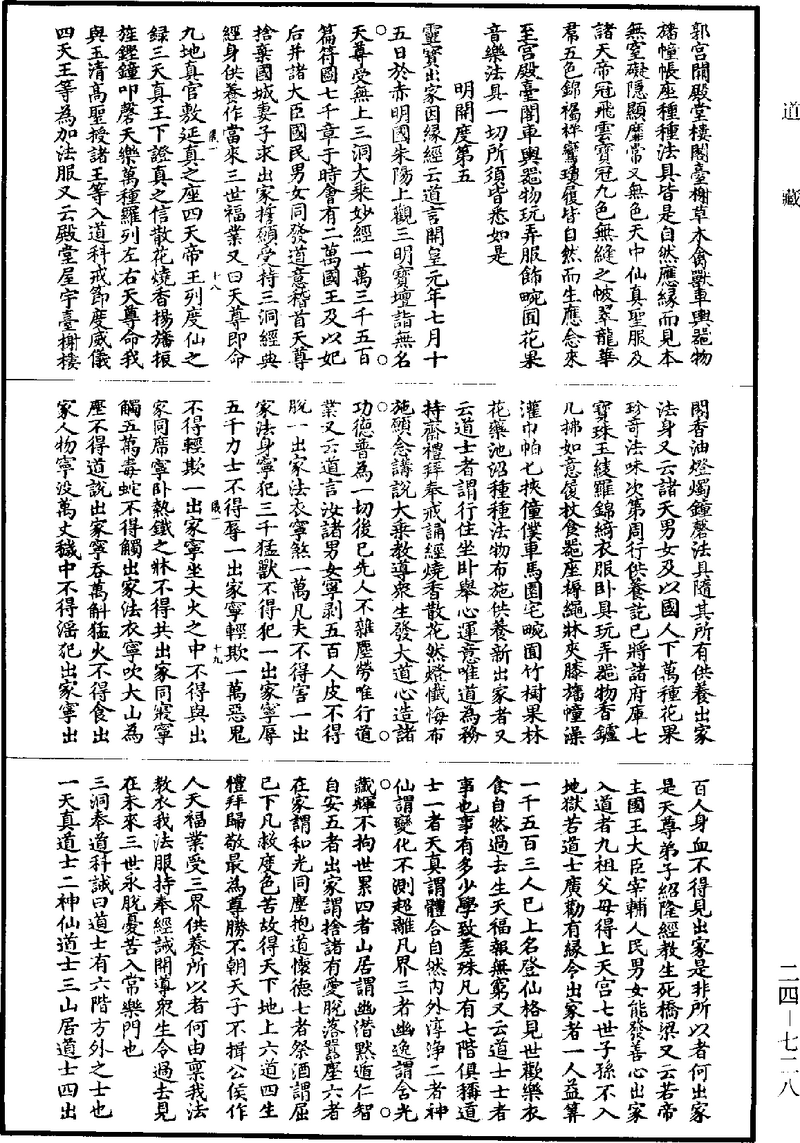 道藏
郭宮闕殿堂棲閣臺榭草木禽獸車輿器物
旛幢帳座種種法具皆是自然應緣而見本
無窒礙隱顯靡常又無色天中仙真聖服及
諸天帝冠飛雲寶冠九色無縫之帔翠龍華
羣五色錦褐袢鸞瓊履皆自然而生應念來
至宮殿臺閣車輿器物玩弄服飾畹囿花果
音樂法具一切所須皆悉如是
明開度第五
靈寶出家因緣經云道言開皇元年七月十
五日於赤明國朱陽上觀三明寶壇詣無名
天尊受無上三洞大乘妙經一萬三千五百
篇符圖七千章于時會有二萬國王及以妃
后并諸大臣國民男女同發道意稽首天尊
捨棄國城妻子求出家擢碩受持三洞經典
經身供養作當來三世福業又曰天尊即命
儀一 十八
九地真官敷延真之座四天帝王列度仙之
録三天真王下證真之信散花燒香揚旛振
旌鏗鐘叩磬天樂萬種羅列左右天尊命我
與玉清高聖授諸王等入道科戒節度威儀
四天王等為加法服又云殿堂屋宇臺榭棲
閣香油燈燭鐘磬法具隨其所有供養出家
法身又云諸天男女及以國人下萬種花果
珍奇法味次第周行供養訖已將諸府庫七
寶珠玉綾羅錦綺衣服卧具玩弄器物香鑪
几拂如意履杖食器座褥繩牀夾膝旛幢澡
灌巾帕七挾僮僕車馬園宅畹囿竹樹果林
花藥池沼種種法物布施供養新出家者又
云道士者謂行住坐卧舉心運意唯道為務
持齋禮拜奉戒誦經燒香散花然燈懺悔布
施願念講說大乘教導衆生發大道心造諸
功德普為一切後已先人不雜塵勞唯行道
業又云道言汝諸男女寧剥五百人皮不得
脫一出家法衣寧煞一萬凡夫不得害一出
家法身寧犯三千猛獸不得犯一出家寧辱
五千力士不得辱一出家寧輕欺一萬惡鬼
儀一 十九
不得輕欺一出家寧坐大火之中不得與出
家同席寧卧熱鐵之牀不得共出家同寢寧
觸五萬毒蛇不得觸出家法衣寧吹大山為
塵不得道說出家寧吞萬斛猛火不得食出
家人物寧没萬丈穢中不得淫犯出家寧出
百人身血不得見出家是非所以者何出家
是天尊弟子紹隆經教生死橋梁又云若帝
主國王大臣宰輔人民男女能發善心出家
入道者九祖父母得上天宮七世子孫不入
地獄若道士廣勸有緣令出家者一人益筭
一千五百三人已上名登仙格見世歡樂衣
食自然過去生天福報無窮又云道士士者
事也事有多少學致差殊凡有七階俱稱道
士一者天真謂體合自然内外淳淨二者神
仙謂變化不測超離凡界三者幽逸謂含光
藏輝不拘世累四者山居謂幽潛默遁仁智
自安五者出家謂捨諸有愛脫落囂塵六者
在家謂和光同塵抱道懷德七者祭酒謂屈
已下凡救度危苦故得天下地上六道四生
禮拜歸敬最為尊勝不朝天子不揖公侯作
人天福業受三界供養所以者何由禀我法
教衣我法服持奉經誡開導衆生令過去見
在未來三世永脫憂苦入常樂門也
三洞奉道科誡曰道士有六階方外之士也
一天真道士二神仙道士三山居道士四出
二四－七二八